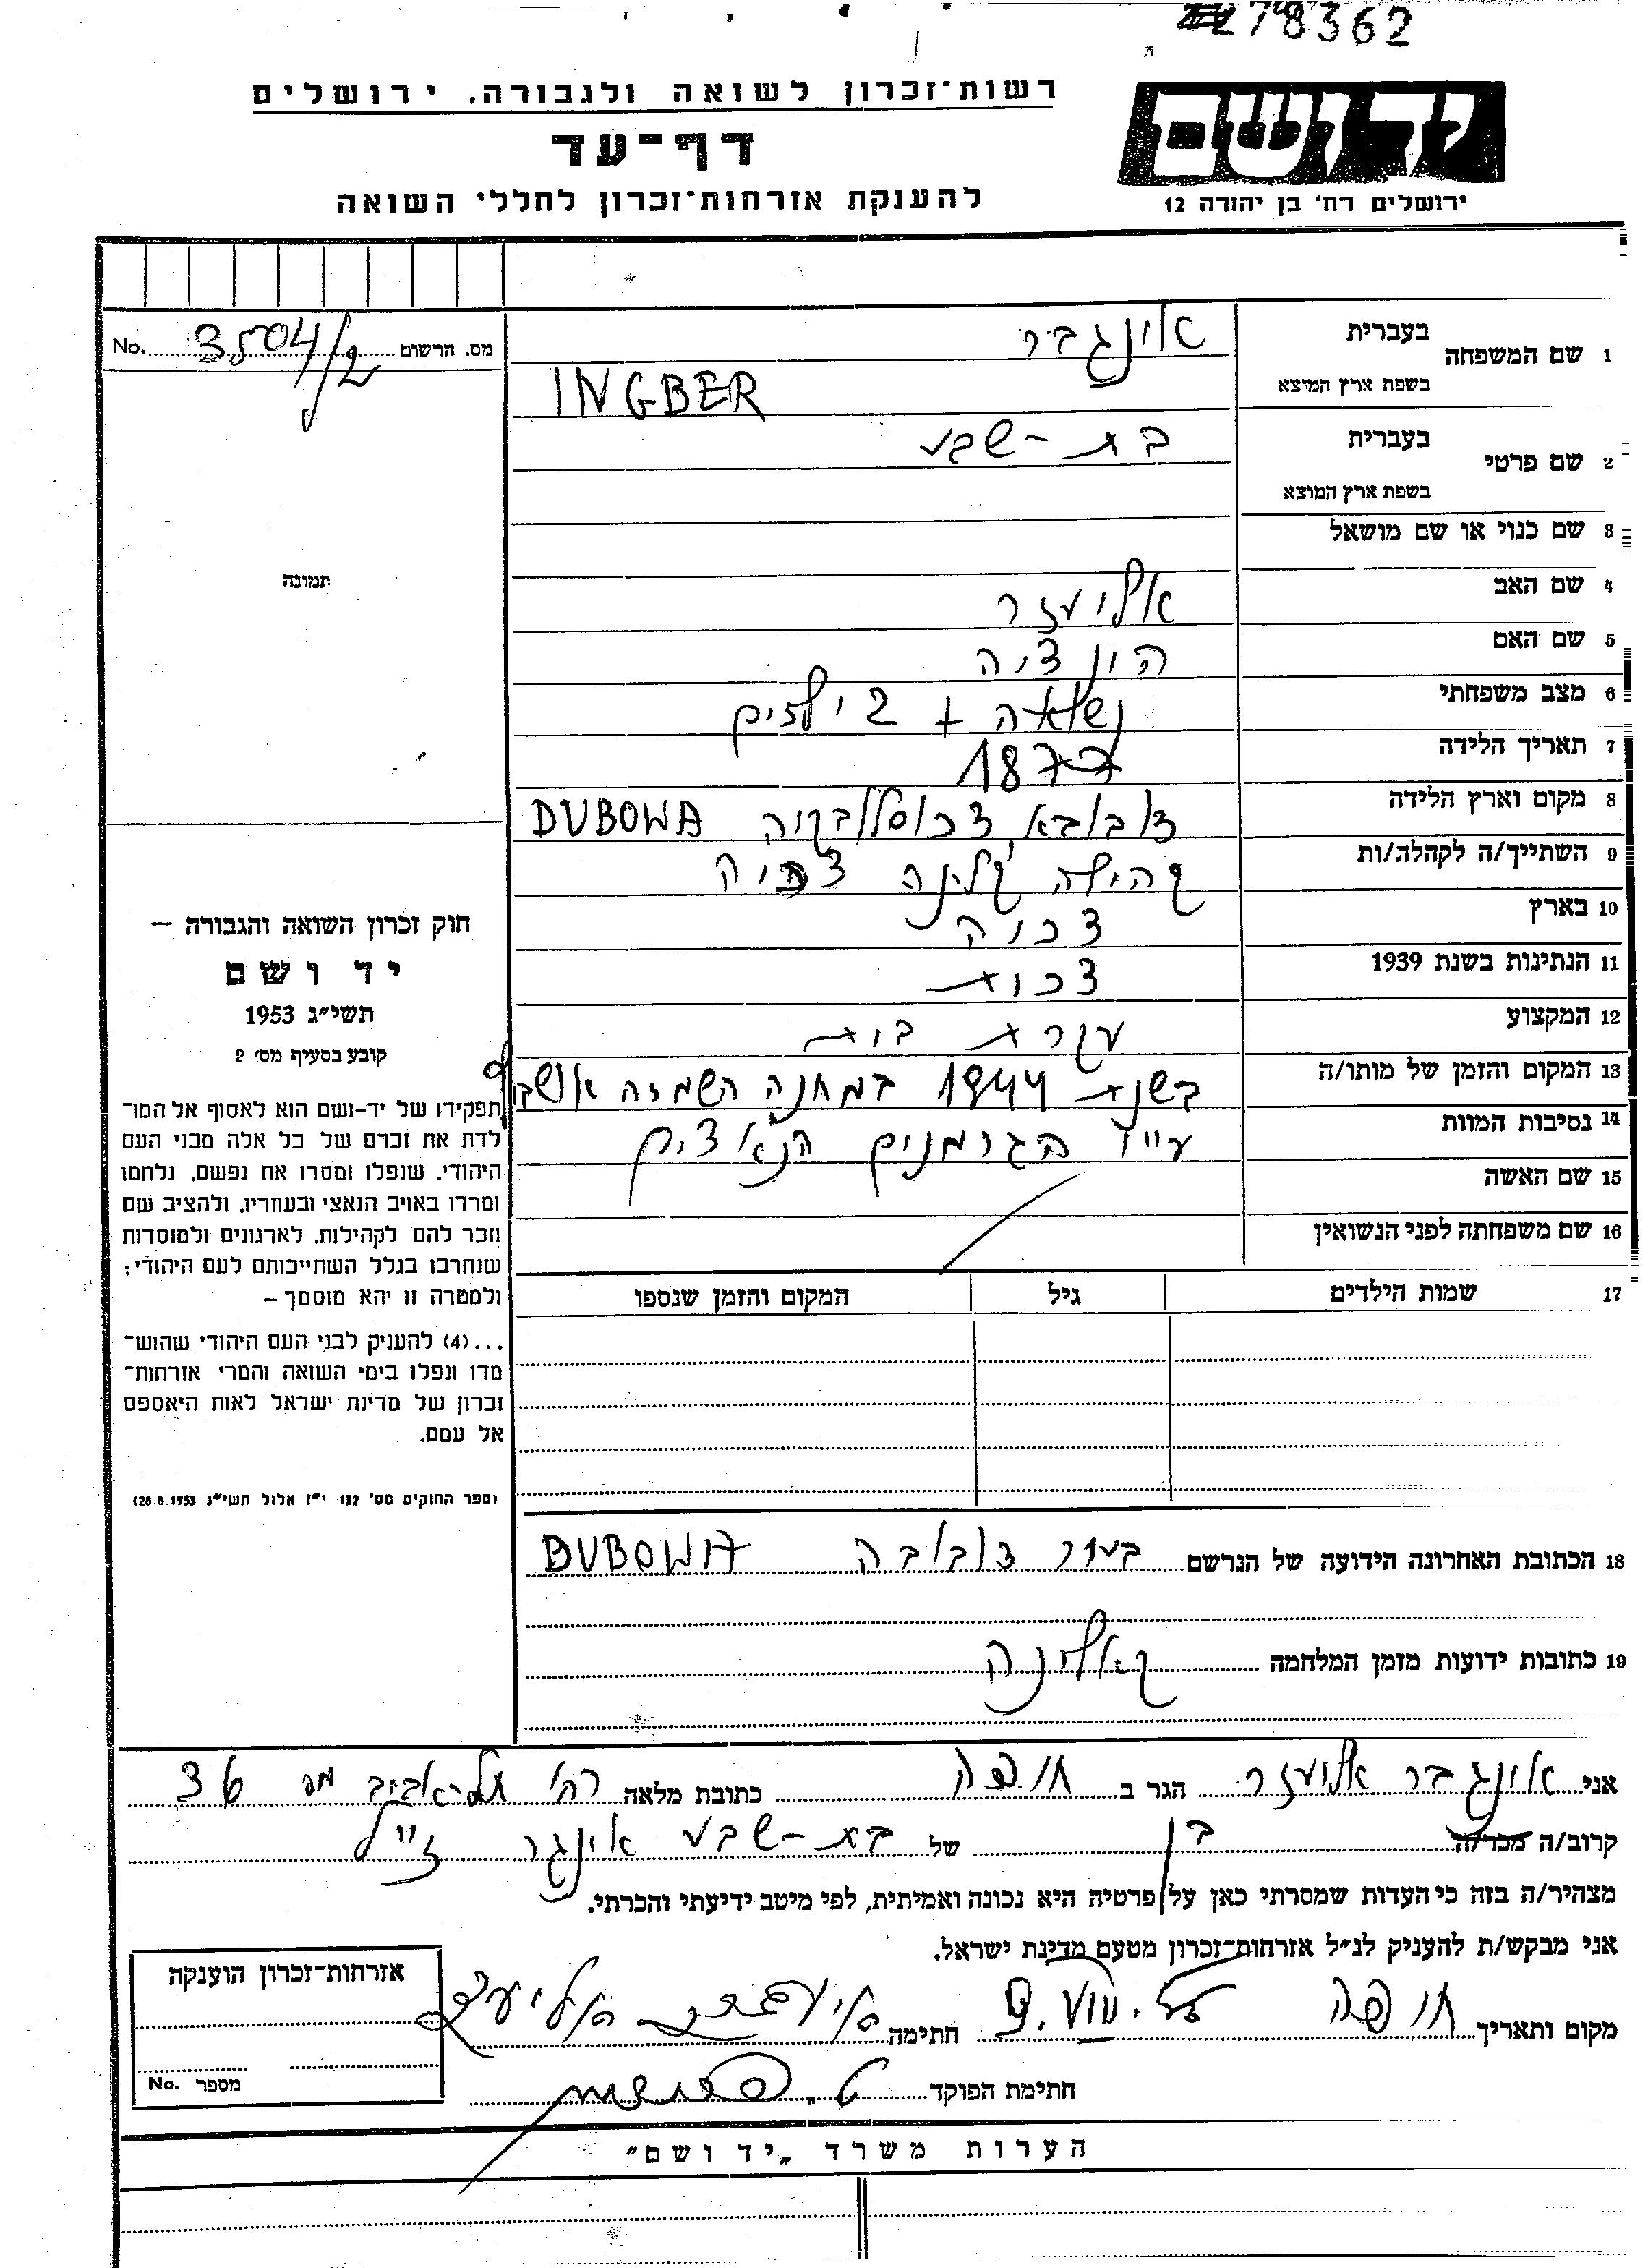 278362
רשות־זכרון לשואה ולגבורה. ירושלים
יד ושם
דף־עד
להענקת אזרחות־זכרון לחללי השואה
ירושלים רח' בן יהודה 12
מס. הרשום 3504/2 No.
1 שם המשפחה בעברית אינגבר
בשפת ארץ המוצא INGBER
2 שם פרטי בעברית בת-שבע
בשפת ארץ המוצא
3 שם כנוי או שם מושאל
4 שם האב אליעזר
5 שם האם הינציה
6 מצב משפחתי נשואה + 2 ילדים
7 תאריך הלידה 1877
8 מקום וארץ הלידה דובובא צכוסלובקיה DUBOWA
9 השתייך/ה לקהלה/ות קהילה קלינה
10 בארץ צכיה
11 הנתינות בשנת 1939 צכית
12 המקצוע עקרת בית
13 המקום והזמן של מותו/ה בשנת 1944 במחנה השמדה
14 נסיבות המוות ע"י הגרמנים הנאצים
15 שם האשה
16 שם משפחתה לפני הנשואין
17 שמות הילדים גיל המקום והזמן שנספו
תמונה
חוק זכרון השואה והגבורה –
יד ושם
תשי"ג 1953
קובע בסעיף מס' 2
תפקידו של יד-ושם הוא לאסוף אל המו־
לדת את זכרם של כל אלה מבני העם
היהודי, שנפלו ומסרו את נפשם, נלחמו
ומרדו באויב הנאצי ובעוזריו, ולהציב שם
וזכר להם לקהילות, לארגונים ולמוסדות
שנחרבו בגלל השתייכותם לעם היהודי;
ולמטרה זו יהא מוסמך –
...(4) להעניק לבני העם היהודי שהוש־
מדו ונפלו בימי השואה והמרי אזרחות־
זכרון של מדינת ישראל לאות היאספם
אל עמם.
(ספר החוקים מס' 132 י"ז אלול תשי"ג 28.8.1953)
18 הכתובת האחרונה הידועה של הנרשם דובובה DUBOWA
19 כתובות ידועות מזמן המלחמה קאלינה
אני אינגבר אליעזר הגר ב חיפה כתובת מלאה רח' תל-אביב מס
קרוב/ה מכר/ה בן של בת-שבע אינגר ז"ל
מצהיר/ה בזה כי העדות שמסרתי כאן על פרטיה היא נכונה ואמיתית, לפי מיטב ידיעתי והכרתי.
אני מבקש/ת להעניק לנ"ל אזרחות־זכרון מטעם מדינת ישראל.
מקום ותאריך חיפה חתימה
חתימת הפוקד
אזרחות־זכרון הוענקה
מספר No.
הערות משרד „יד ושם"